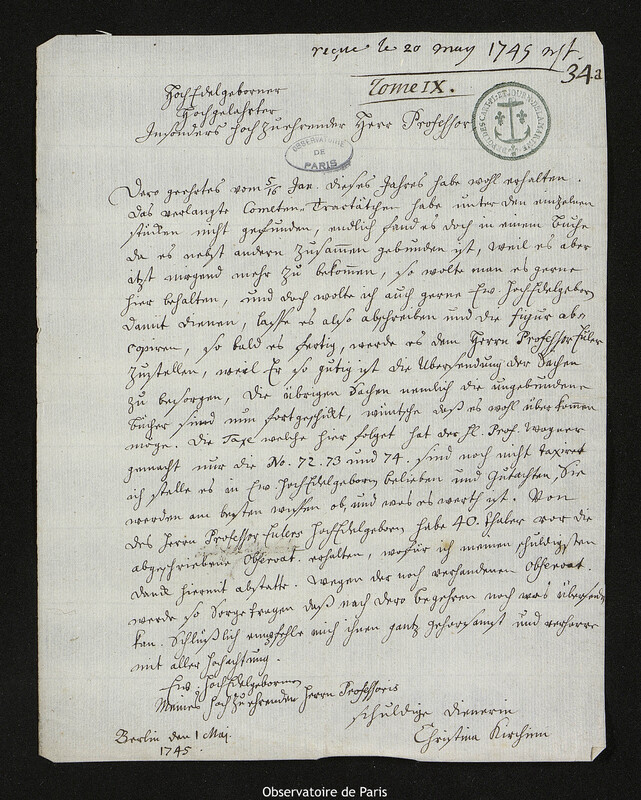 reçue le 20 may 1745 n/st.
Tome IX.
34.a
HochEdelgeborner
Hochgelahrter
Insonders hoch zu ehrender Herr Professor
OBSERVATOIRE DE PARIS
Dero geehrtes vom 5/16 Jan. dieses Jahres habe wohl erhalten.
das verlangte Cometen-Tractätchen habe unter den einzelnen
stücken nicht gefunden, endlich fand es doch in einem Buche
da es nebst andern zusammen gebunden ist, weil es aber
itzt nirgend mehr zu bekommen, so wolte man es gerne
hier behalten, und doch wolte ich auch gerne Ew. HochEdelgeborn
damit dienen, lasse es also abschreiben und die figur ab
copiren, so bald es fertig, werde es dem Herrn Professor Euler
zustellen, weil Er so gütig ist die Übersendung der Sachen
zu besorgen, die übrigen Sachen nemlich die ungebundene
bücher sind nun fortgeschickt, wüntsche daß es wohl überkommen
möge. die Taxe welche hier folget hat der H. Prof. Wagner
gemacht nur die No. 72. 73 und 74. sind noch nicht taxiret
ich stelle es in Ew. HochEdelgeborn belieben und Gutachten, Sie
werden am besten wissen ob, und was es werth ist. Von
des Herrn Professor Eulers HochEdelgeborn habe 40. thaler vor die
abgeschriebene Observat. erhalten, wofür ich meinen schuldigsten
danck hiermit abstatte. Wegen der noch verhandenen Observat.
werde so Sorge tragen daß nach dero begehren noch was übersenden
kan. Schlüßlich empfehle mich ihnen gantz gehorsamst und verharre
mit aller Hochachtung.
Ew. HochEdelgebornen
Meines Hochzuehrenden Herrn Professoris
schuldige dienerin
Christina Kirchin
Berlin den 1 Maj.
1745.
Observatoire de Paris